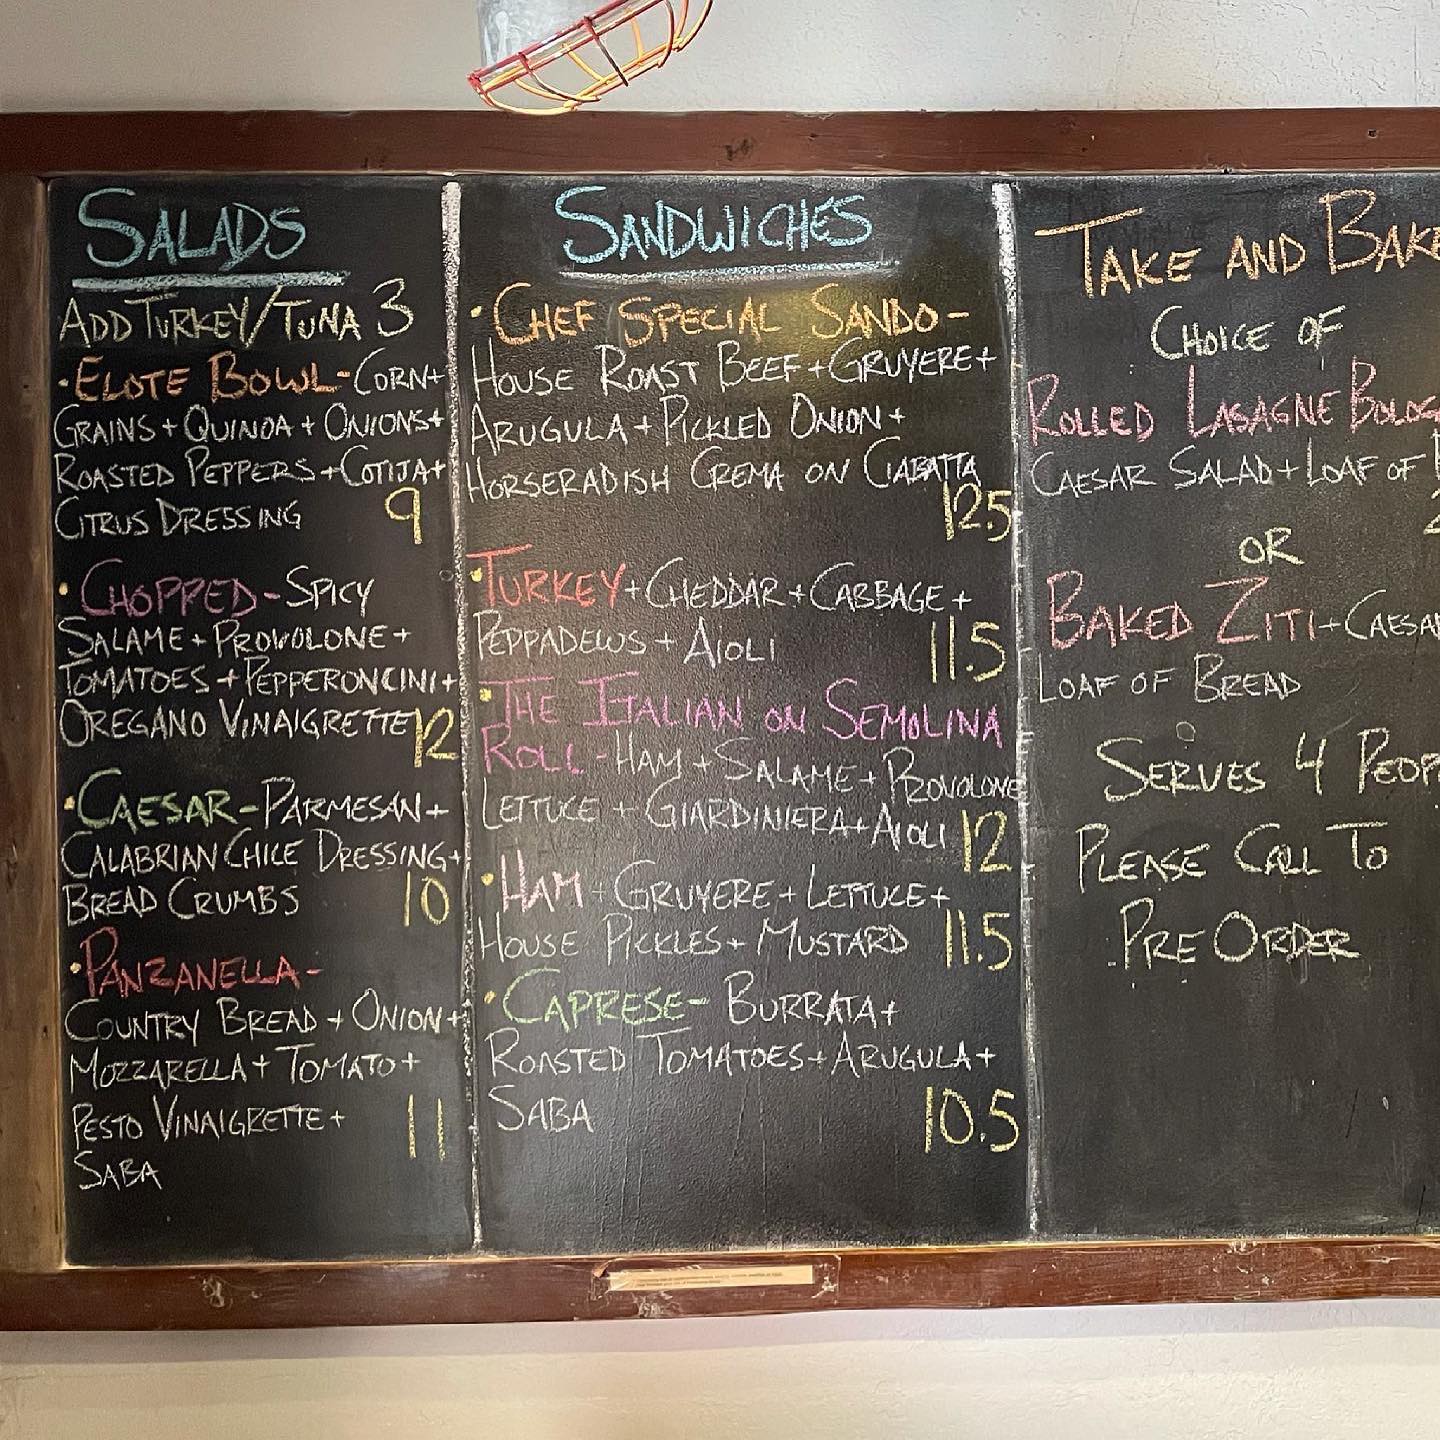 SALADS
ADD TURKEY/TUNA 3
·ELOTE BOWL-CORN+
GRAINS+QUINOA+ONIONS+
ROASTED PEPPERS+COTIJA+
CITRUS DRESSING 9
·CHOPPED-SPICY
SALAME+PROVOLONE+
TOMATOES+PEPPERONCINI+
OREGANO VINAIGRETTE 12
·CAESAR-PARMESAN+
CALABRIAN CHILE DRESSING+
BREAD CRUMBS 10
·PANZANELLA-
COUNTRY BREAD+ONION+
MOZZARELLA+TOMATO+
PESTO VINAIGRETTE+ 11
SABA
SANDWICHES
·CHEF SPECIAL SANDO-
HOUSE ROAST BEEF+GRUYERE+
ARUGULA+PICKLED ONION+
HORSERADISH CREMA ON CIABATTA
12.5
·TURKEY+CHEDDAR+CABBAGE+
PEPPADEWS+AIOLI 11.5
·THE ITALIAN ON SEMOLINA
ROLL-HAM+SALAME+PROVOLONE
LETTUCE+GIARDINIERA+AIOLI 12
·HAM+GRUYERE+LETTUCE+
HOUSE PICKLES+MUSTARD 11.5
·CAPRESE-BURRATA+
ROASTED TOMATOES+ARUGULA+
SABA 10.5
TAKE AND BAKE
CHOICE OF
ROLLED LASAGNE BOLOG
CAESAR SALAD+LOAF OF
OR
BAKED ZITI+CAESAR
LOAF OF BREAD
SERVES 4 PEOP
PLEASE CALL TO
PRE ORDER